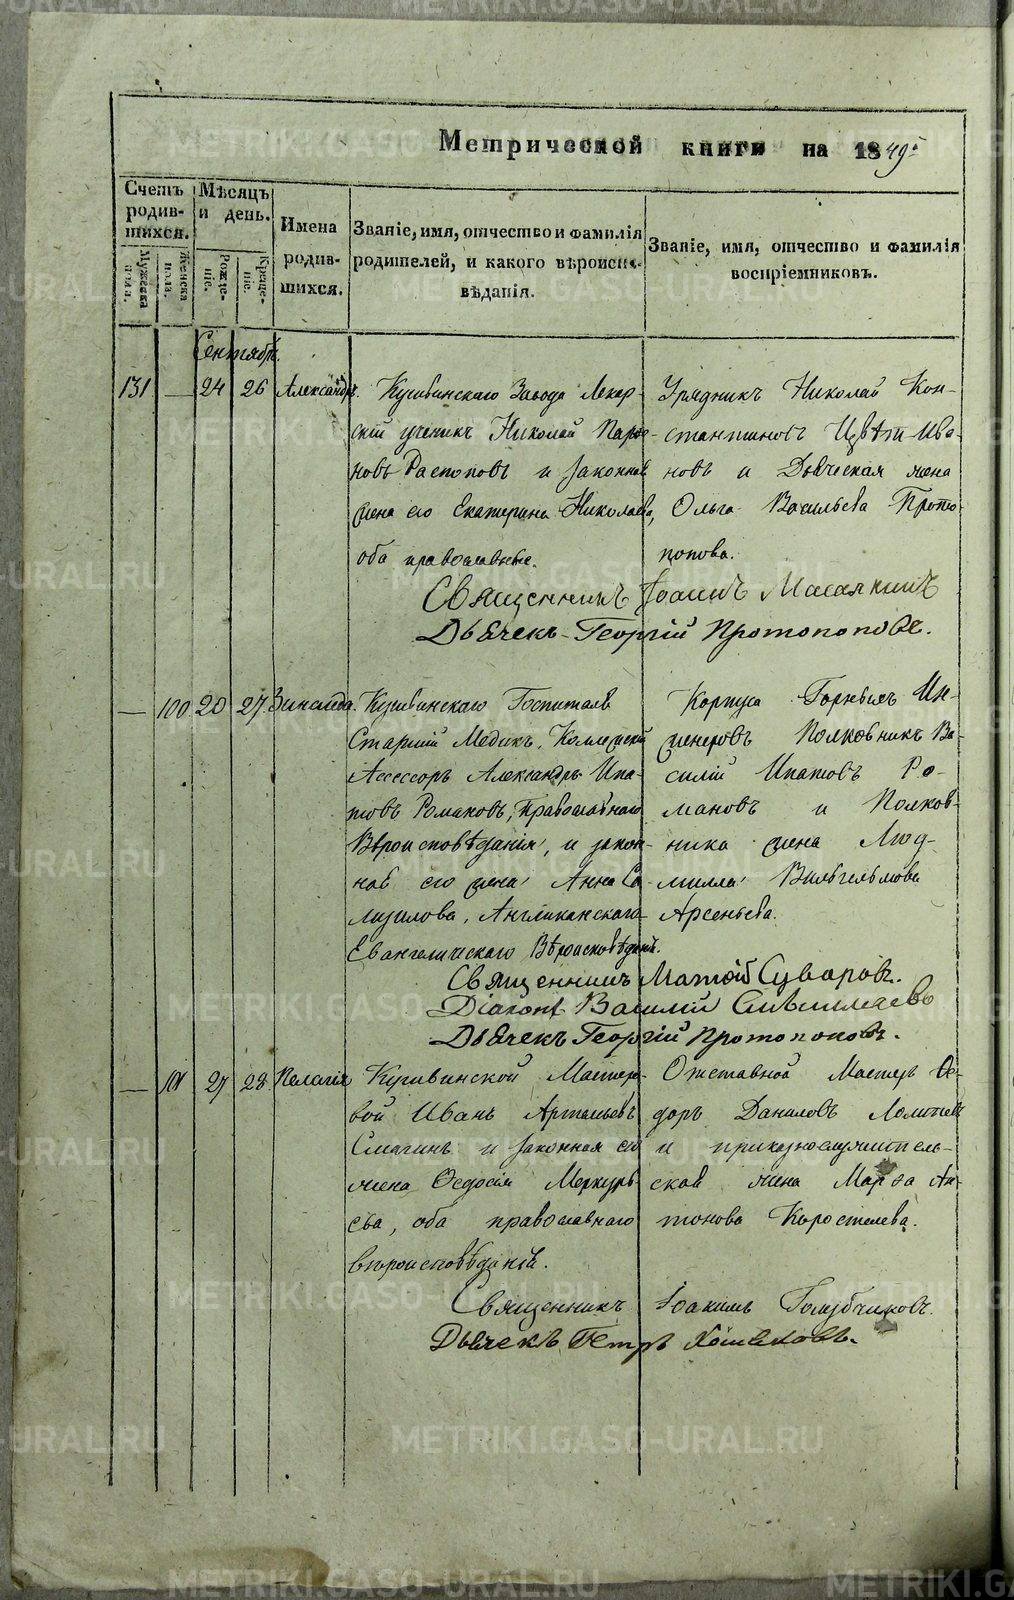 Метрической книги на 1849 г.
Счетъ родив-шихся.
Мужеска пола.
Женска пола.
Мѣсяцъ и день.
Рожде-ніе.
Креще-ніе.
Имена родив-шихся.
Званіе, имя, отчество и фамилія родителей, и какого вѣроиспо-вѣданія.
Званіе, имя, отчество и фамилія воспріемниковъ.
Сентябрь.
131 — 24 26 Александръ.
Кушвинскаго Завода Лекар-
скій ученикъ Николай
новъ Распоповъ и законная
жена его Екатерина Николаева,
оба православные.
Урядникъ Николай Кон-
стантиновъ Цвѣт Ива-
новъ и Дьяческая жена
Ольга Васильева Прото-
попова.
Священникъ Іоаннъ
Дьячекъ Георгій Протопоповъ.
— 100 20 27 Зинаида.
Кушвинскаго Госпиталя
Старшій Медикъ, Коллежскій
Ассессоръ Александръ Ипа-
товъ Романовъ, Православнаго
Вѣроисповѣданія, и закон-
ная его жена Анна Са-
муилова, Англиканскаго
Евангелическаго Вѣроисповѣданія.
Корпуса Горныхъ Ин-
женеровъ Полковникъ Ва-
силій Ипатовъ Ро-
мановъ и Полков-
ника жена Люд-
милла Вильгельмова
Арсеньева.
Священникъ Матѳій Суваровъ.
Діаконъ Василій
Дьячекъ Георгій Протопоповъ.
— 101 27 28 Пелагія
Кушвинской Мастеро-
вой Иванъ Артемьевъ
Смагинъ и законная его
жена Ѳедосія Меркурь-
ева, оба православнаго
вѣроисповѣданія.
Отставной Мастеръ Ѳе-
доръ Даниловъ
и приказнослужитель-
ская жена Марѳа Ан-
тонова Коростелева.
Священникъ Іоакимъ Голубчиковъ.
Дьячекъ Петръ Хомяковъ.
METRIKI.GASO-URAL.RU